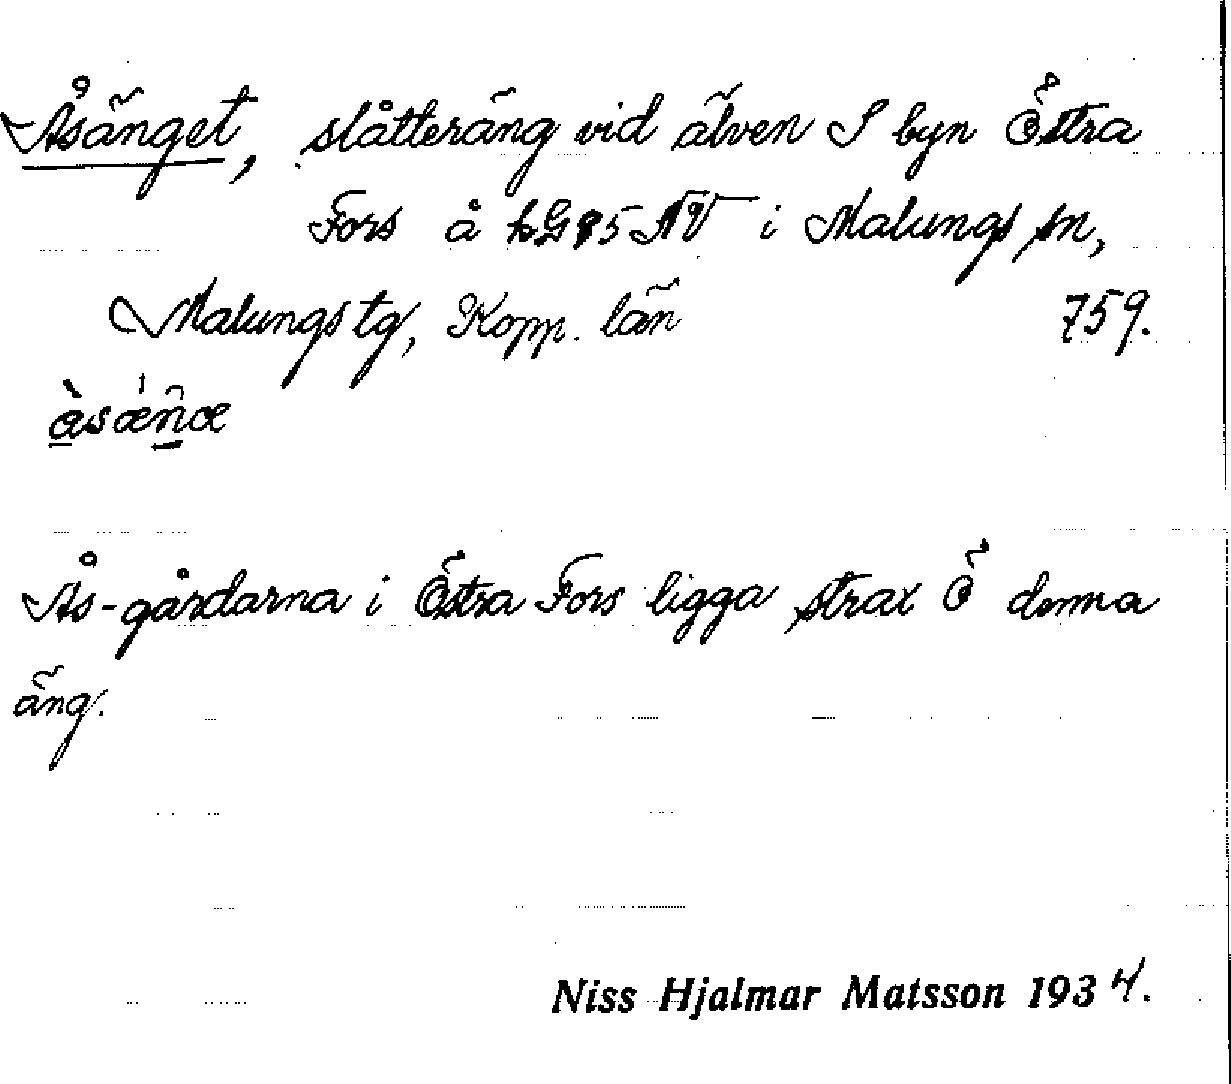 Åsänget, slåtteräng vid älven S byn Östra
Fors å kG 95 NV i Malungs sn,
Malungs tg, Kopp. län 759.
Ås-gårdarna i Östra Fors ligga strax Ö denna
äng.
Niss Hjalmar Matsson 1934.